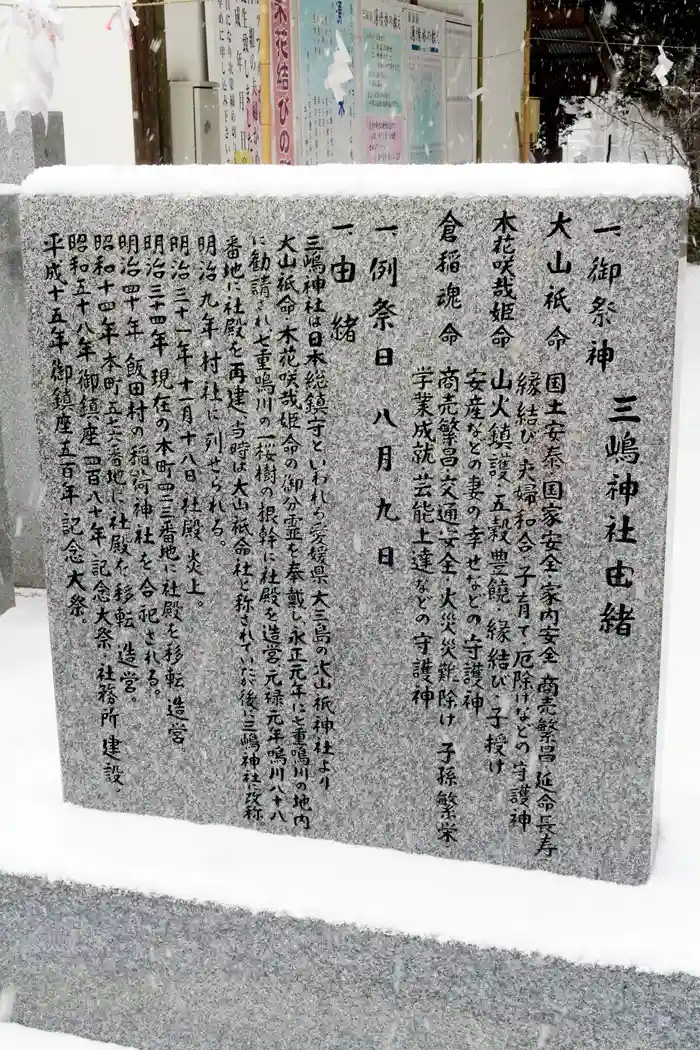 三嶋神社由緒
一、御祭神
大山祇命 国土安泰・国家安全・家内安全 商売繁昌 延命長寿
縁結び・夫婦和合・子育て・厄除けなどの守護神
木花咲哉姫命 山火鎮護・五穀豊饒 縁結び・子授け
安産などの妻の幸せなどの守護神
倉稲魂命 商売繁昌・交通安全・火災災難除け 子孫繁栄
学業成就・芸能上達などの守護神
一、例祭日 八月九日
一、由緒
三嶋神社は日本総鎮守といわれる愛媛県大三島の大山祇神社より
大山祇命 木花咲哉姫命の御分霊を奉戴し、永正元年に七重鳴川の地内
に勧請され七重鳴川の一桜樹の根幹に社殿を造営、元禄元年鳴川八十八
番地に社殿を再建、当時は大山祇命社と称されていたが、後に三嶋神社に改称
明治九年 村社に列せられる。
明治三十一年十一月十八日 社殿炎上。
明治三十四年 現在の本町四三三番地に社殿を移転造営。
明治四十年 飯田村の稲荷神社を合祀される。
昭和十四年 本町五七六番地に社殿を移転 造営。
昭和五十八年 御鎮座四百八十年 記念大祭。社務所建設。
平成十五年 御鎮座五百年 記念大祭。
木花結びの